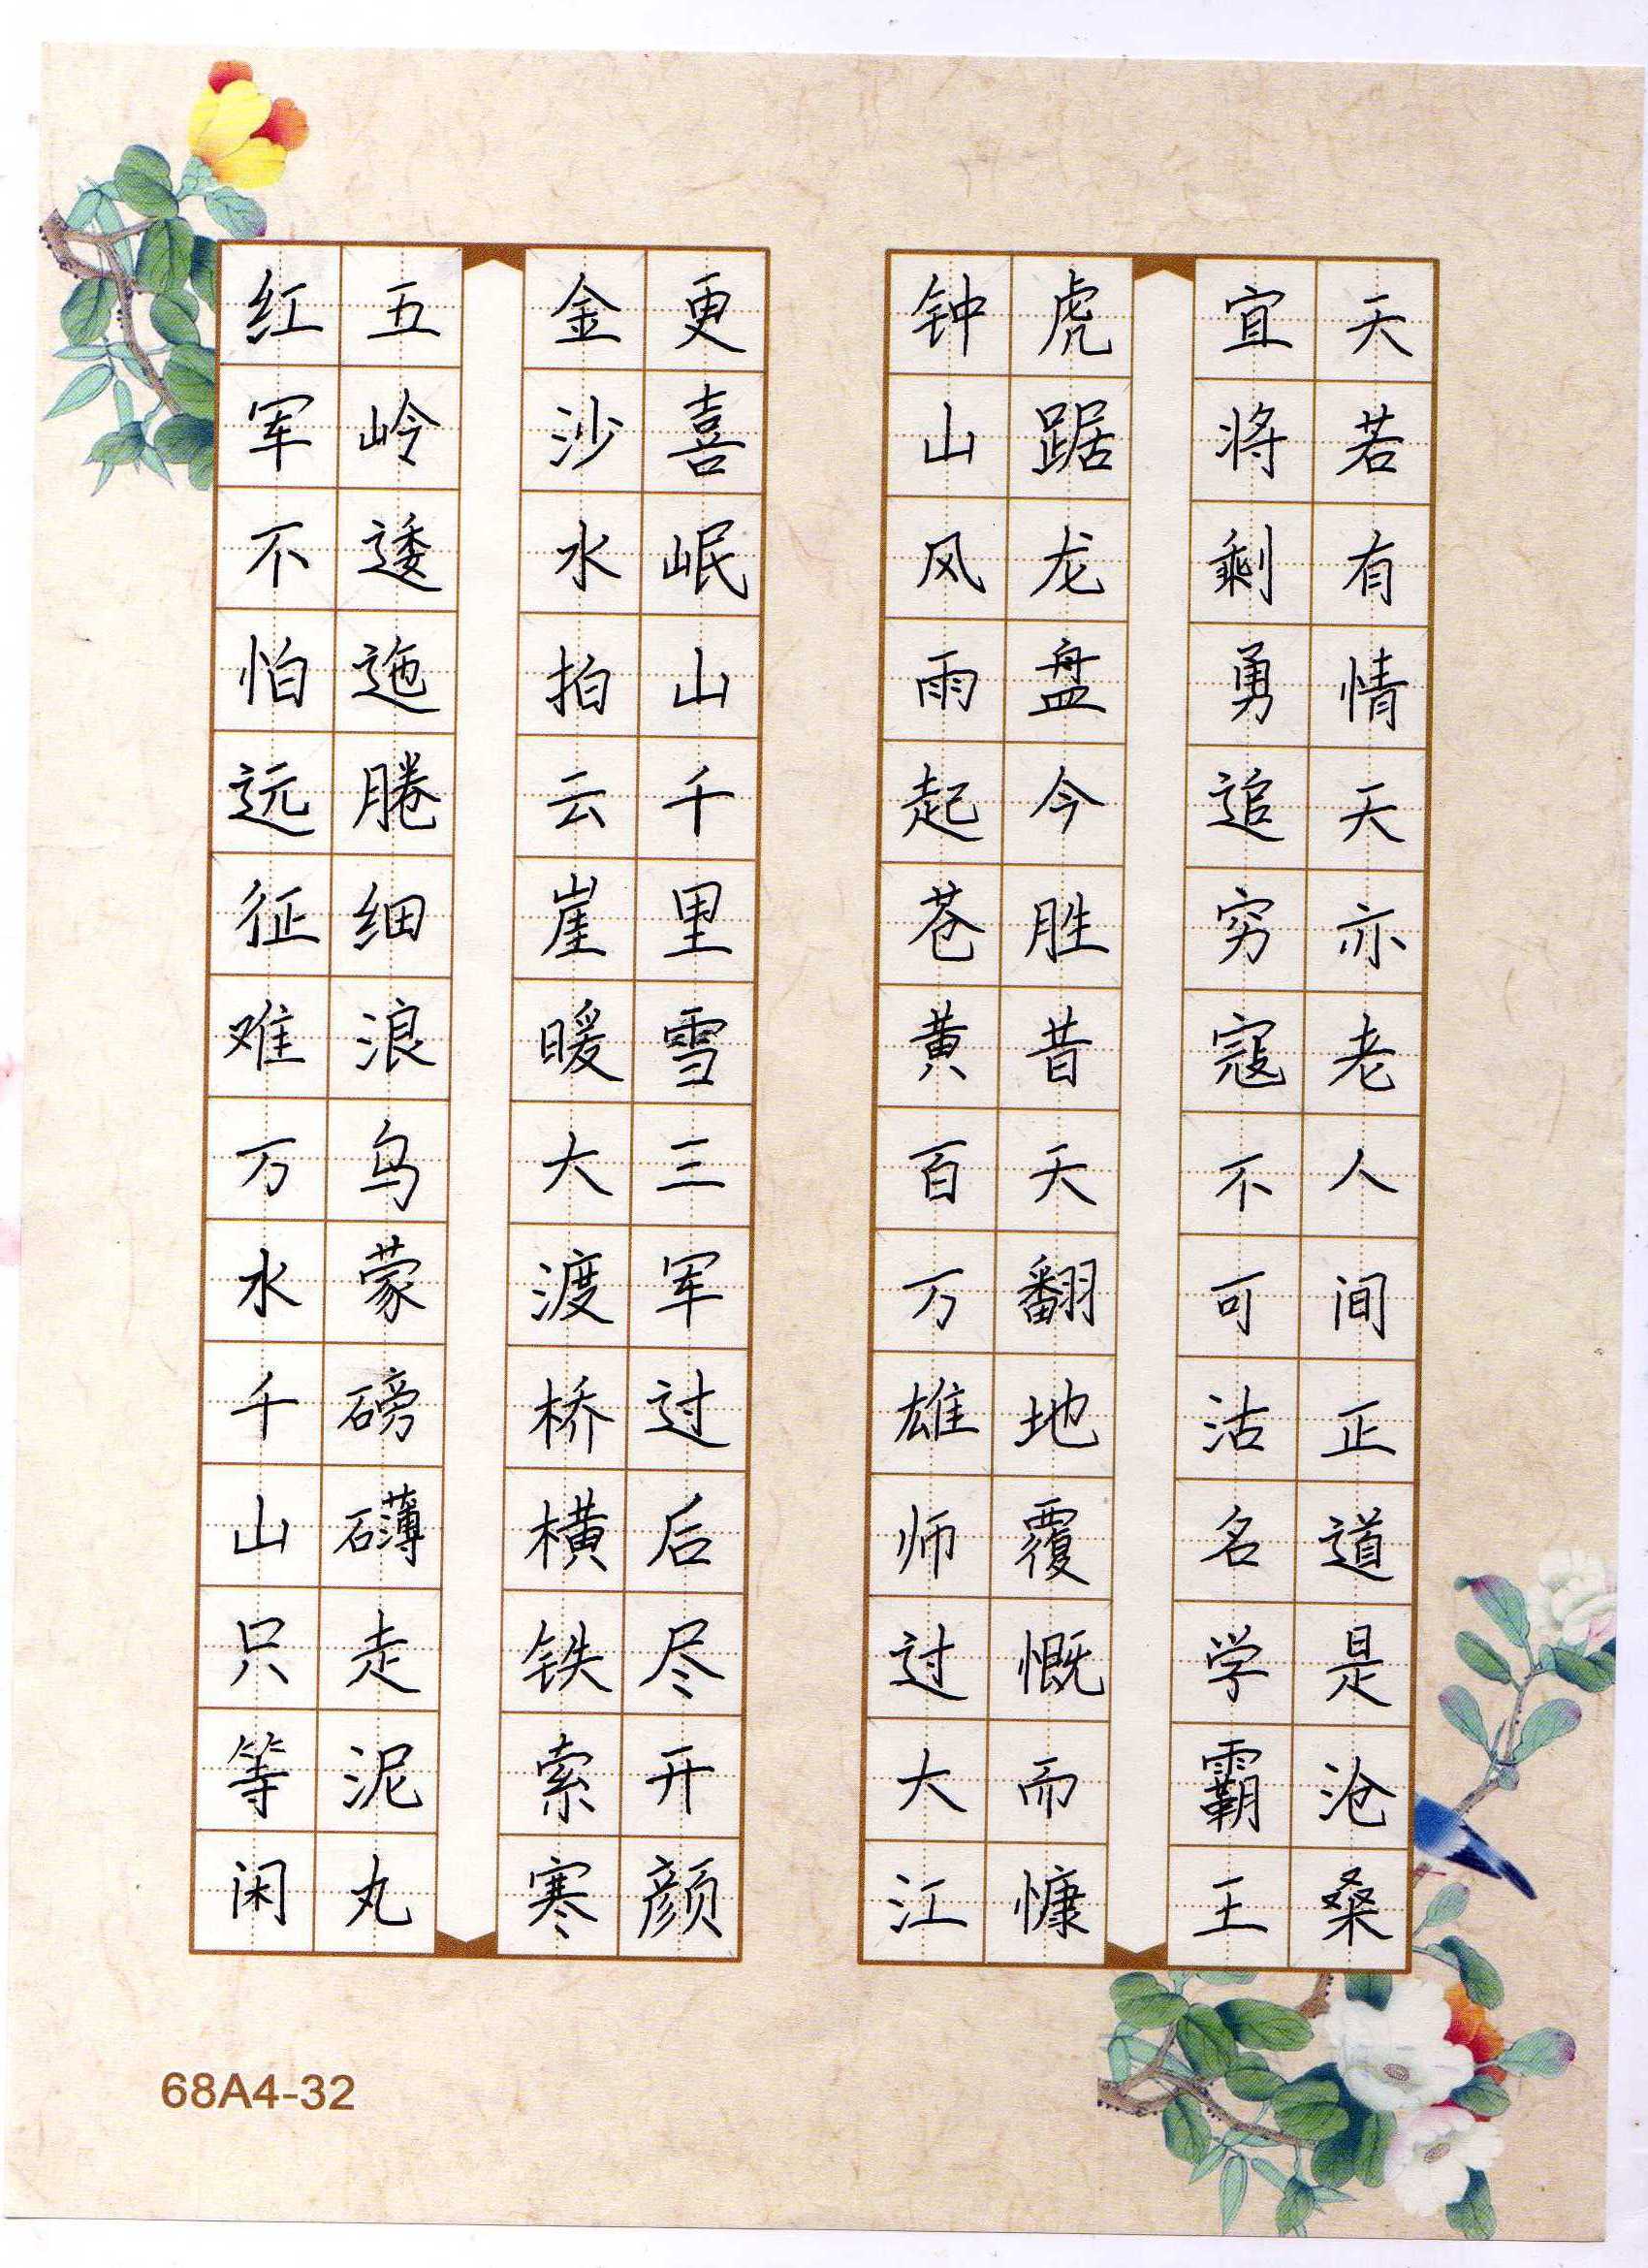 红军不怕远征难万水千山只等闲
五岭逶迤腾细浪乌蒙磅礴走泥丸
金沙水拍云崖暖大渡桥横铁索寒
更喜岷山千里雪三军过后尽开颜
钟山风雨起苍黄百万雄师过大江
虎踞龙盘今胜昔天翻地覆慨而慷
宜将剩勇追穷寇不可沽名学霸王
天若有情天亦老人间正道是沧桑
68A4-32